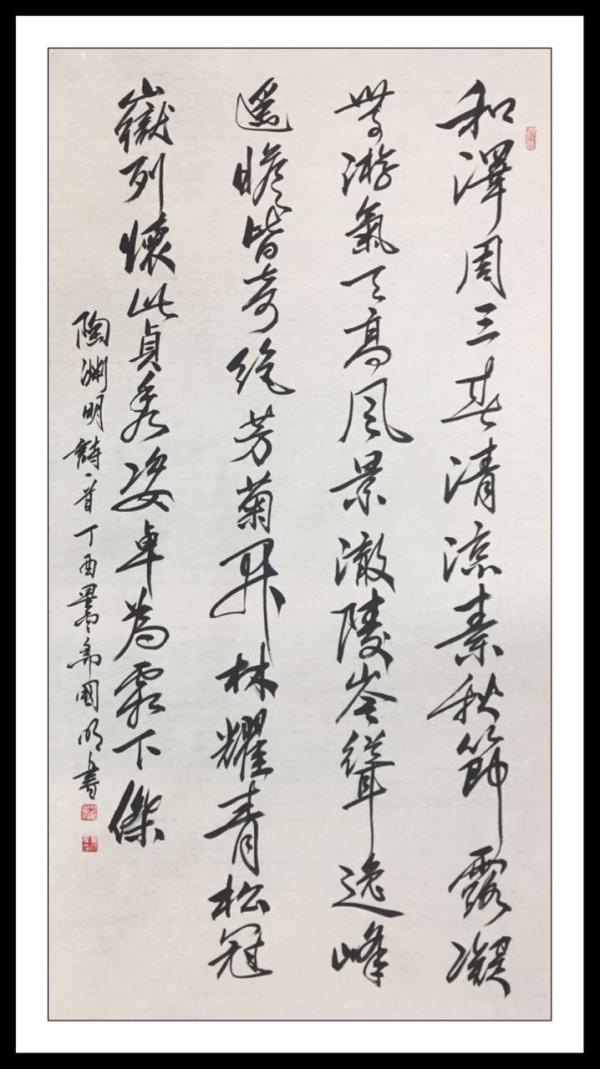 和澤周三春清涼素秋節露凝
無游氣天高風景澈陵岑聳逸峰
遙瞻皆奇絕芳菊開林耀青松冠
嶽列懷此貞秀姿卓為霜下傑
陶淵明詩一首丁酉國明書